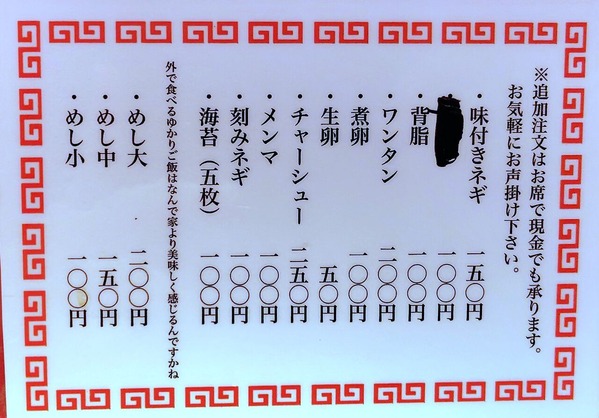 ※追加注文はお席で現金でも承ります。
お気軽にお声掛け下さい。
・味付きネギ 一五〇円
一〇〇円
・背脂 一〇〇円
・ワンタン 二〇〇円
・煮卵 一〇〇円
・生卵 五〇円
・チャーシュー 二五〇円
・メンマ 一〇〇円
・刻みネギ 一〇〇円
・海苔（五枚） 一〇〇円
外で食べるゆかりご飯はなんで家より美味しく感じるんですかね
・めし大 二〇〇円
・めし中 一五〇円
・めし小 一〇〇円